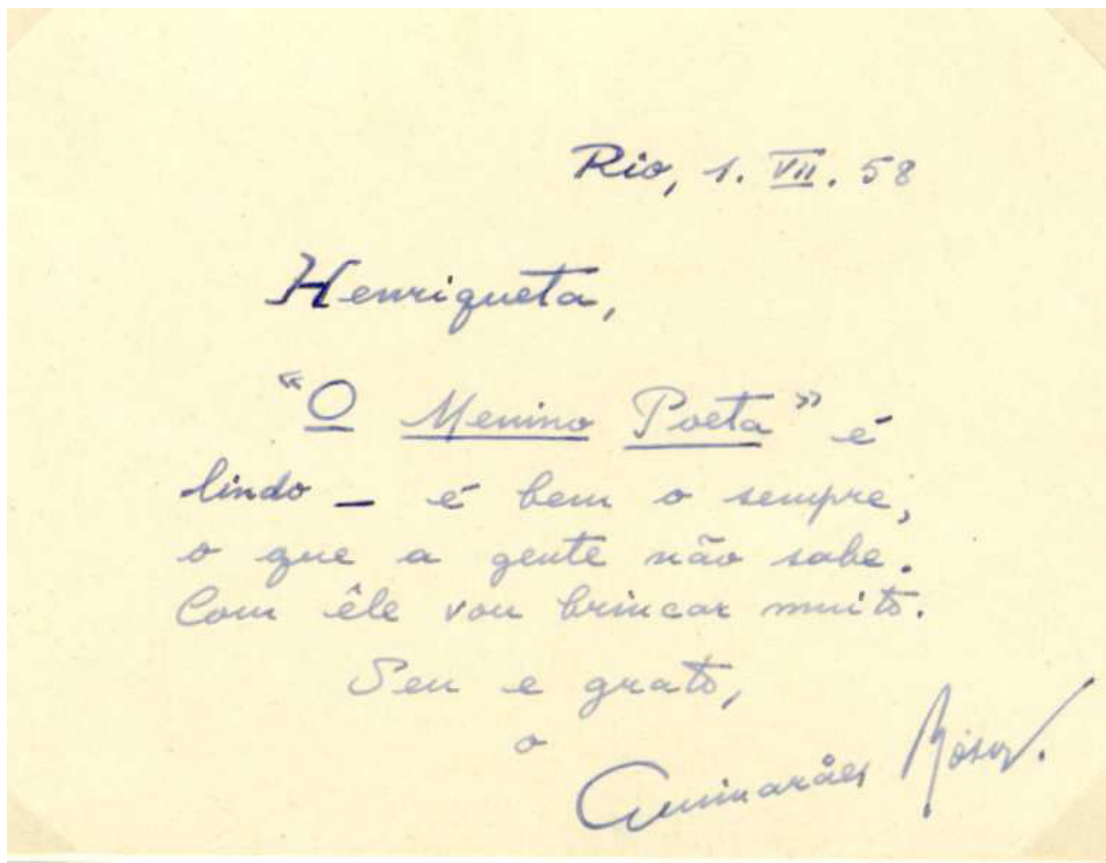 Rio, 1. VII. 58
Henriqueta,
"O Menino Poeta" é
lindo — é bem o sempre,
o que a gente não sabe.
Com êle vou brincar muito.
Seu e grato,
o
Guimarães Rosa.